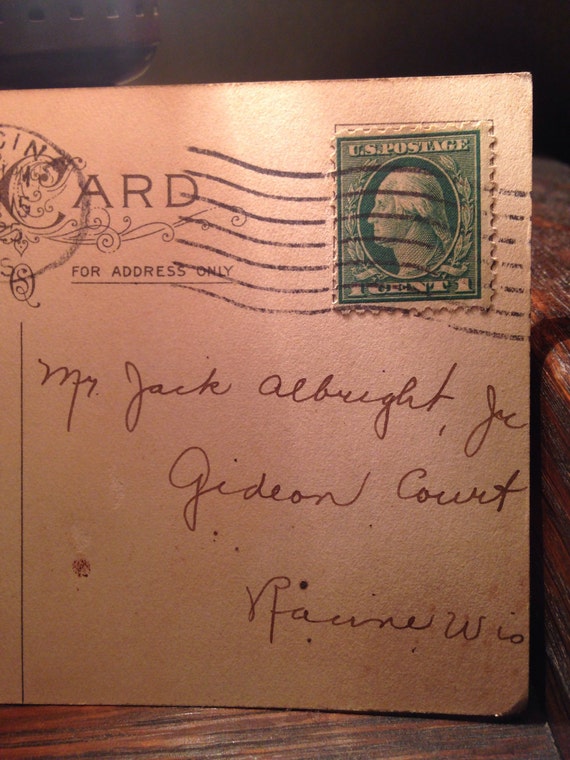 CARD
FOR ADDRESS ONLY
U.S. POSTAGE
1 CENT 1
Mr. Jack Albright, Jr
Gideon Court
Racine Wis